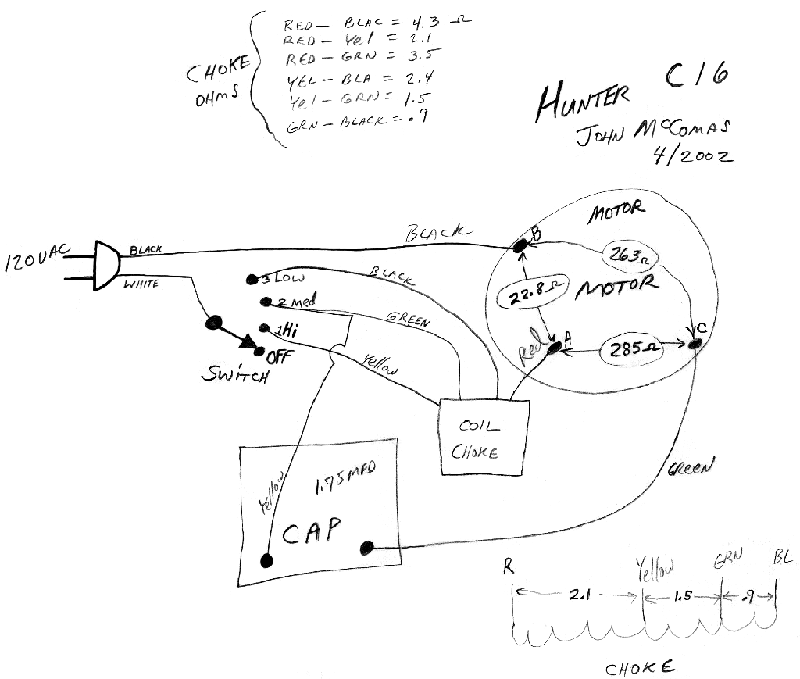 RED— BLAC = 4.3 Ω
RED - Yel = 2.1
RED - GRN = 3.5
YEL - BLA = 2.4
Yel - GRN = 1.5
GRN - BLACK = .9
CHOKE
OHMS
HUNTER C16
JOHN McCOMAS
4/2002
120VAC
BLACK
WHITE
BLACK
MOTOR
B
263Ω
22.8Ω
MOTOR
Red
A
285Ω
C
3 LOW
BLACK
2 Med
GREEN
1 Hi
OFF
Yellow
SWITCH
COIL
CHOKE
Yellow
1.75 MFD
CAP
GREEN
R
Yellow
GRN
BL
2.1
1.5
.9
CHOKE